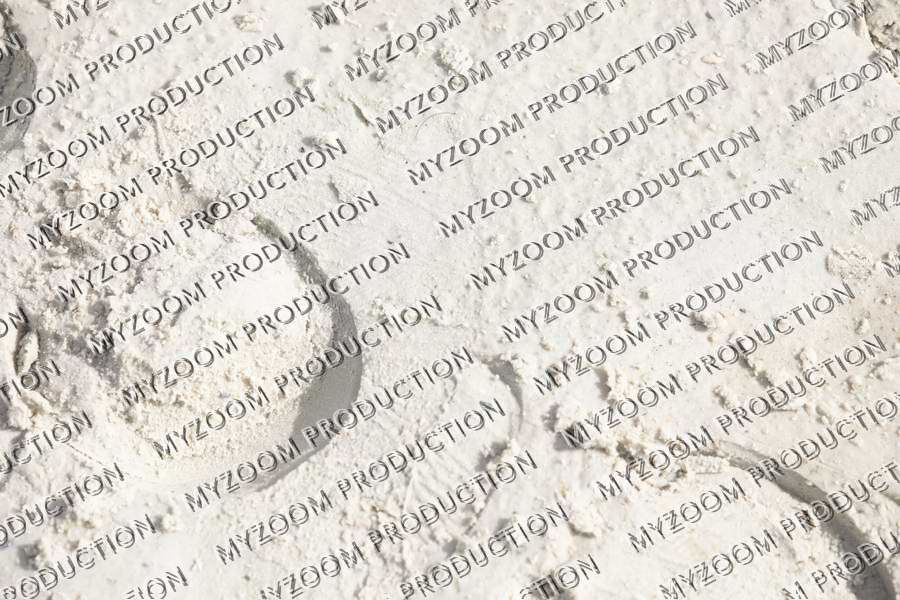 MYZOOM
MYZOOM PRODUCTION
MYZOOM PRODUCTION MYZOOM
MYZOOM PRODUCTION MYZOOM PRODUCTION
MYZOOM PRODUCTION MYZOOM PRODUCTION MYZOOM
MYZOOM PRODUCTION MYZOOM PRODUCTION MYZOOM
MYZOOM PRODUCTION MYZOOM PRODUCTION MYZOOM
MYZOOM PRODUCTION MYZOOM PRODUCTION
MYZOOM PRODUCTION MYZOOM PRODUCTION
PRODUCTION MYZOOM PRODUCTION MYZOOM PRODUCTION
PRODUCTION MYZOOM PRODUCTION MYZOOM PRODUCTION
PRODUCTION MYZOOM PRODUCTION MYZOOM PRODUCTION
MYZOOM PRODUCTION MYZOOM PRODUCTION